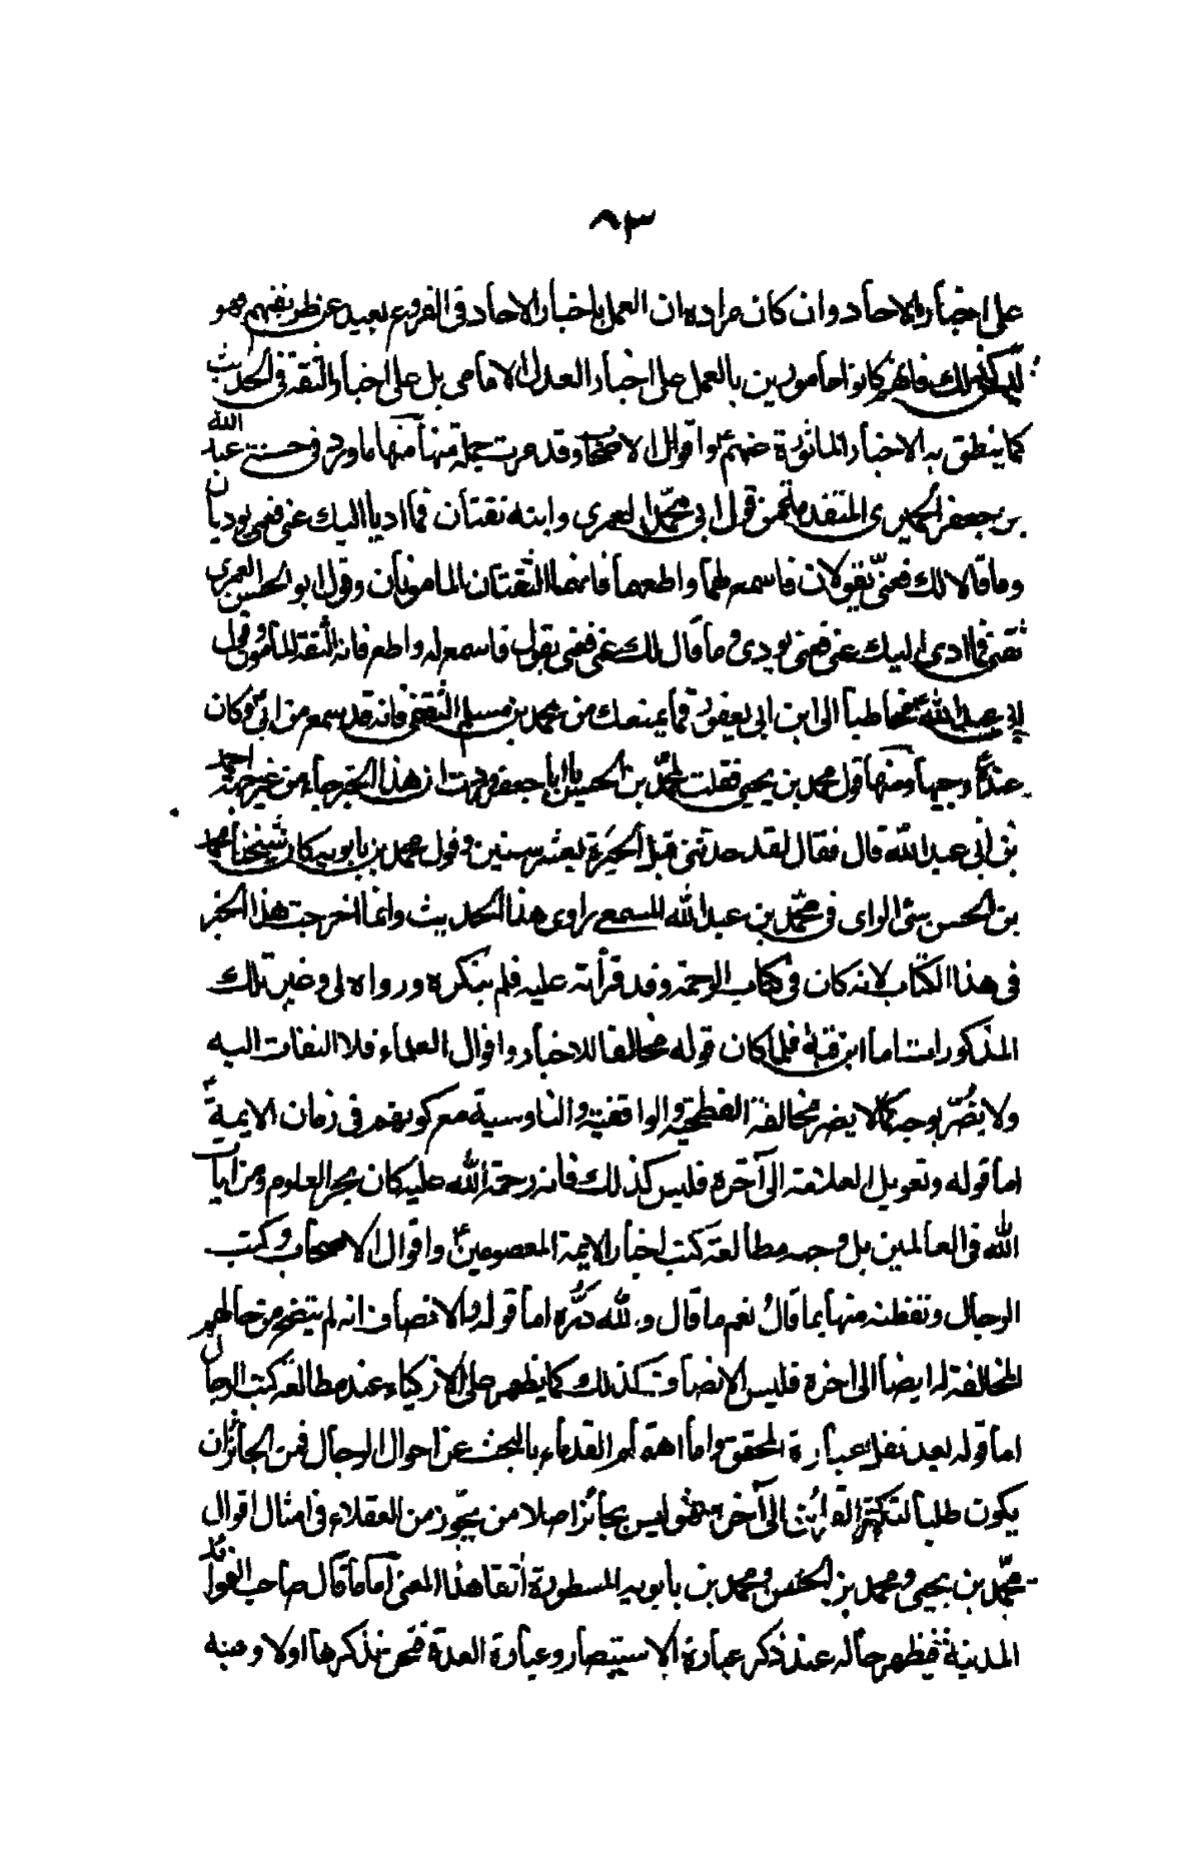 ٨٣
على اخبار الاحاد وان كان مراده ان العمل باخبار الاحاد فى الفروع بعيد عن طريقتهم فهو
ليس كذلك فانهم كانوا مامورين بالعمل على اخبار العدل الامامى بل على اخبار الثقة فى الحديث
كما ينطق به الاخبار الماثورة عنهم ع واقوال الاصحاب وقد مرت جملة منها منها ما ورد فى حسنة عبد الله
بن جعفر الحميرى المتقدمة من قول ابى محمد العمرى وابنه ثقتان فما اديا اليك عنى فعنى يوديان
وما قالا لك فعنى يقولان فاسمع لهما واطعهما فانهما الثقتان المامونان وقول ابو الحسن العمرى
ثقتى فما ادى اليك عنى فعنى يودى وما قال لك عنى فعنى يقول فاسمع له واطع فانه الثقة المأمون وقول
ابى عبد الله ع مخاطبا الى ابن ابى يعفور فما يمنعك من محمد بن مسلم الثقفى فانه قد سمع من ابى وكان
عنده وجيها ومنها قول محمد بن يحيى فقلت لمحمد بن الحسين يا ابا جعفر وددت ان هذا الخبر جاء من غير جهة احمد
بن ابى عبد الله قال فقال لقد حدثنى قبل الحيرة بعشر سنين وقول محمد بن بابويه كان شيخنا محمد
بن الحسن سئ الراى فى محمد بن عبد الله المسمعى راوى هذا الحديث وانما اخرجت هذا الخبر
فى هذا الكتاب لانه كان فى كتاب الرحمة وقد قرأته عليه فلم ينكره ورواه لى وغير تلك
المذكورات اما ابن قبة فلما كان قوله مخالفا للاخبار واقوال العلماء فلا التفات اليه
ولا يضر بوجه كما لا يضر مخالفة الفطحية والواقفية والناوسية مع كونهم فى زمان الايمة ع
اما قوله وتعويل العلامة الى آخره فليس كذلك فانه رحمة الله عليه كان بحر العلوم ومن ايات
الله فى العالمين بل وجه مطالعة كتب اخبار الايمة المعصومين ع واقوال الاصحاب وكتب
الرجال وتفطنه منها بما قال نعم ما قال ولله دره اما قوله والانصاف انه لم يتضح من حالهم
المخالفة له ايضا الى اخره فليس الانصاف كذلك كما يظهر على الاذكياء عند مطالعة كتب الرجال
اما قوله بعد نقل عبارة المحقق واما اهتمام القدماء بالبحث عن احوال الرجال فمن الجائز ان
يكون طلبا لتكثير القرائن الى آخره فهو ليس بجائز اصلا من يجوز من العقلاء فى امثال اقوال
محمد بن يحيى ومحمد بن الحسن ومحمد بن بابويه المسطورة انفا هذا المعنى اما ما قال صاحب الفوائد
المدنية فيظهر حاله عند ذكر عبارة الاستبصار وعبارة العدة فنحن نذكرها اولا ومنه